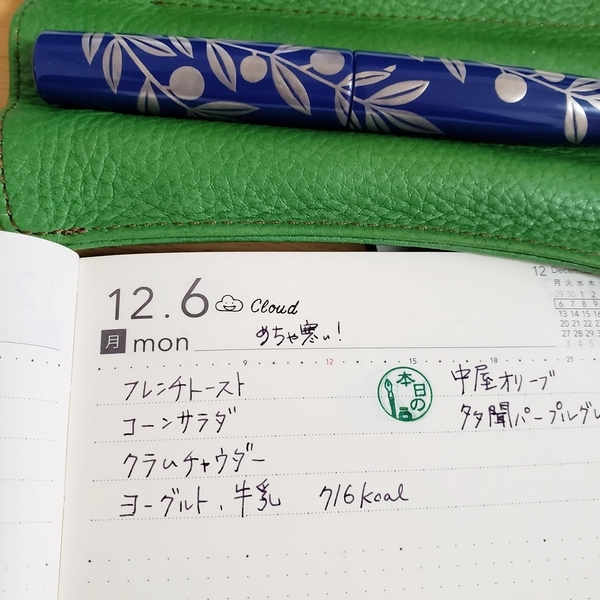 12.6 Cloud
12 Dece
月 mon めちゃ寒い!
月 火 水 木
29 30 1 2
6 7 8 9
13 14 15 16
20 21 22 23
27 28 29 30
3 4 5
9 12 15 18 21
フレンチトースト
コーンサラダ
クラムチャウダー
ヨーグルト、牛乳 716kcal
本日の
中屋オリーブ
多聞パープルグレ